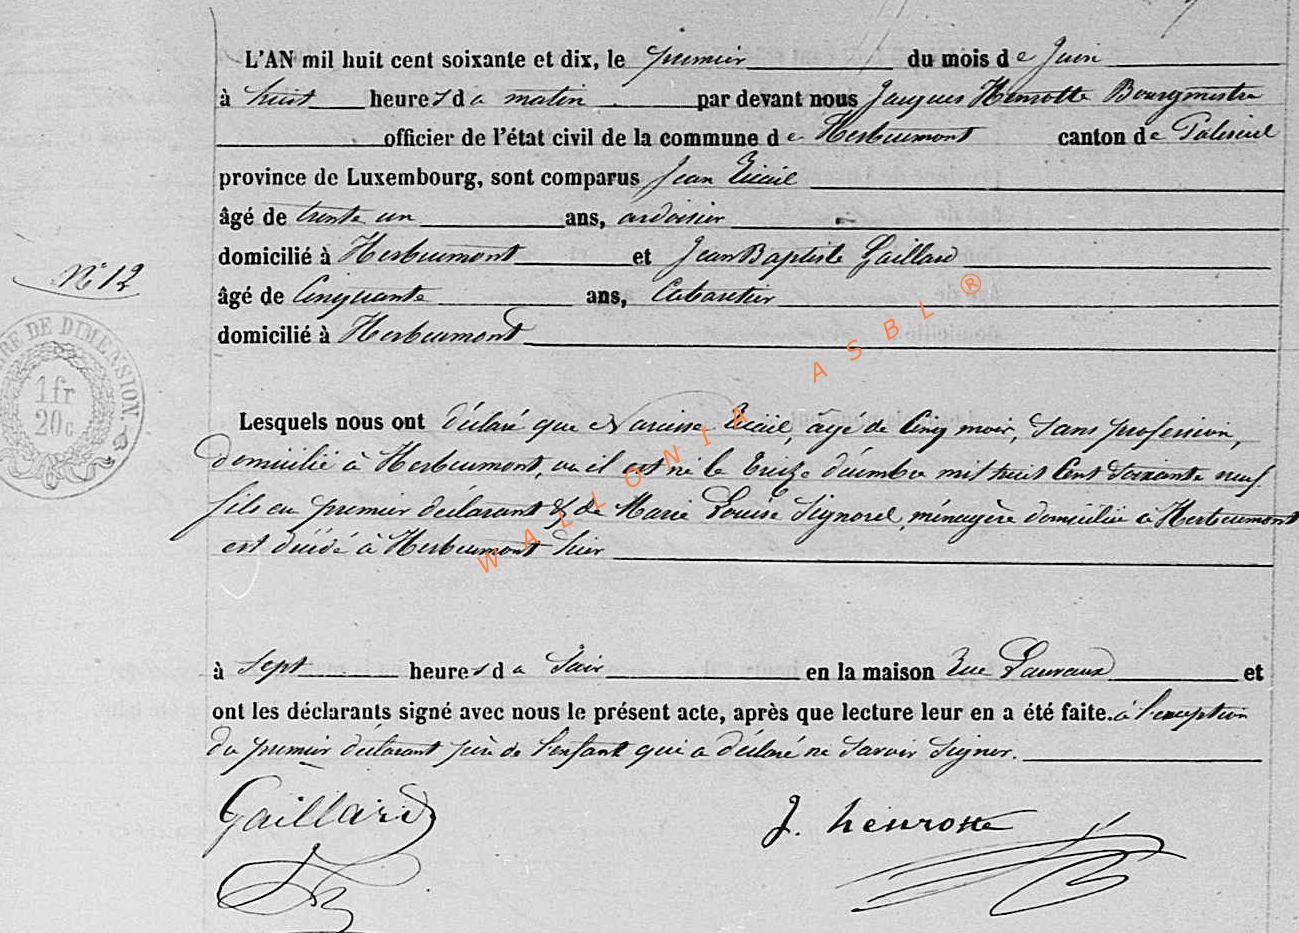 L'AN mil huit cent soixante et dix, le premier du mois de Juin
à huit heures du matin par devant nous Jacques Henrotte Bourgmestre
officier de l'état civil de la commune de Herbeumont canton de Paliseul
province de Luxembourg, sont comparus Jean
âgé de trente un ans, ardoisier
domicilié à Herbeumont et Jean Baptiste Gaillard
N° 12
âgé de Cinquante ans, Cabaretier
domicilié à Herbeumont
DE DIMENSION.
1 fr
20 c
Lesquels nous ont déclaré que Narcisse âgé de Cinq mois, Sans profession,
domicilié à Herbeumont, où il est né le treize décembre mil huit Cent Soixante neuf
fils du premier déclarant & de Marie Louise Signorel, ménagère domiciliée à Herbeumont
est décédé à Herbeumont hier
à Sept heures du Soir en la maison Rue Lauvaux et
ont les déclarants signé avec nous le présent acte, après que lecture leur en a été faite. à l'exception
du premier déclarant père de l'enfant qui a déclaré ne Savoir Signer.
Gaillard J. henrotte
WALLONIA ASBL ®